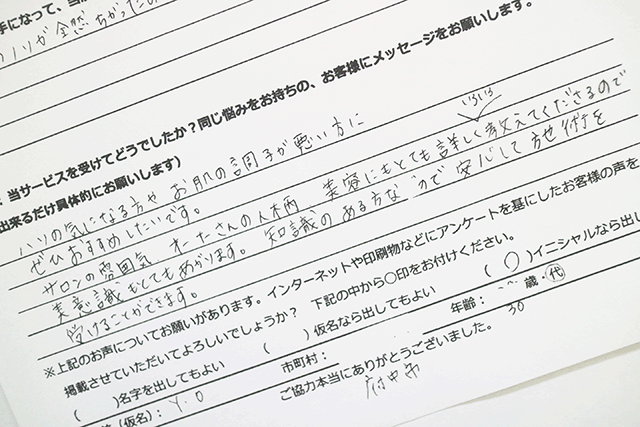 手になって、当
ノリが全然ちがった
．当サービスを受けてどうでしたか？同じ悩みをお持ちの、お客様にメッセージをお願いします。
出来るだけ具体的にお願いします）
ハリの気になる方や お肌の調子が悪い方に
ぜひおすすめしたいです。
いろいろ
サロンの雰囲気 オーナーさんの人柄 美容にもとても詳しく教えてくださるので
美意識もとてもあがります。 知識のある方なので 安心して施術を
受けることができます。
※上記のお声についてお願いがあります。インターネットや印刷物などにアンケートを基にしたお客様の声を
掲載させていただいてよろしいでしょうか？ 下記の中から○印をお付けください。
( )名字を出してもよい ( )仮名なら出してもよい (○)イニシャルなら出し
(仮名)：Y.O 市町村： 府中市 年齢： 30 歳・代
ご協力本当にありがとうございました。